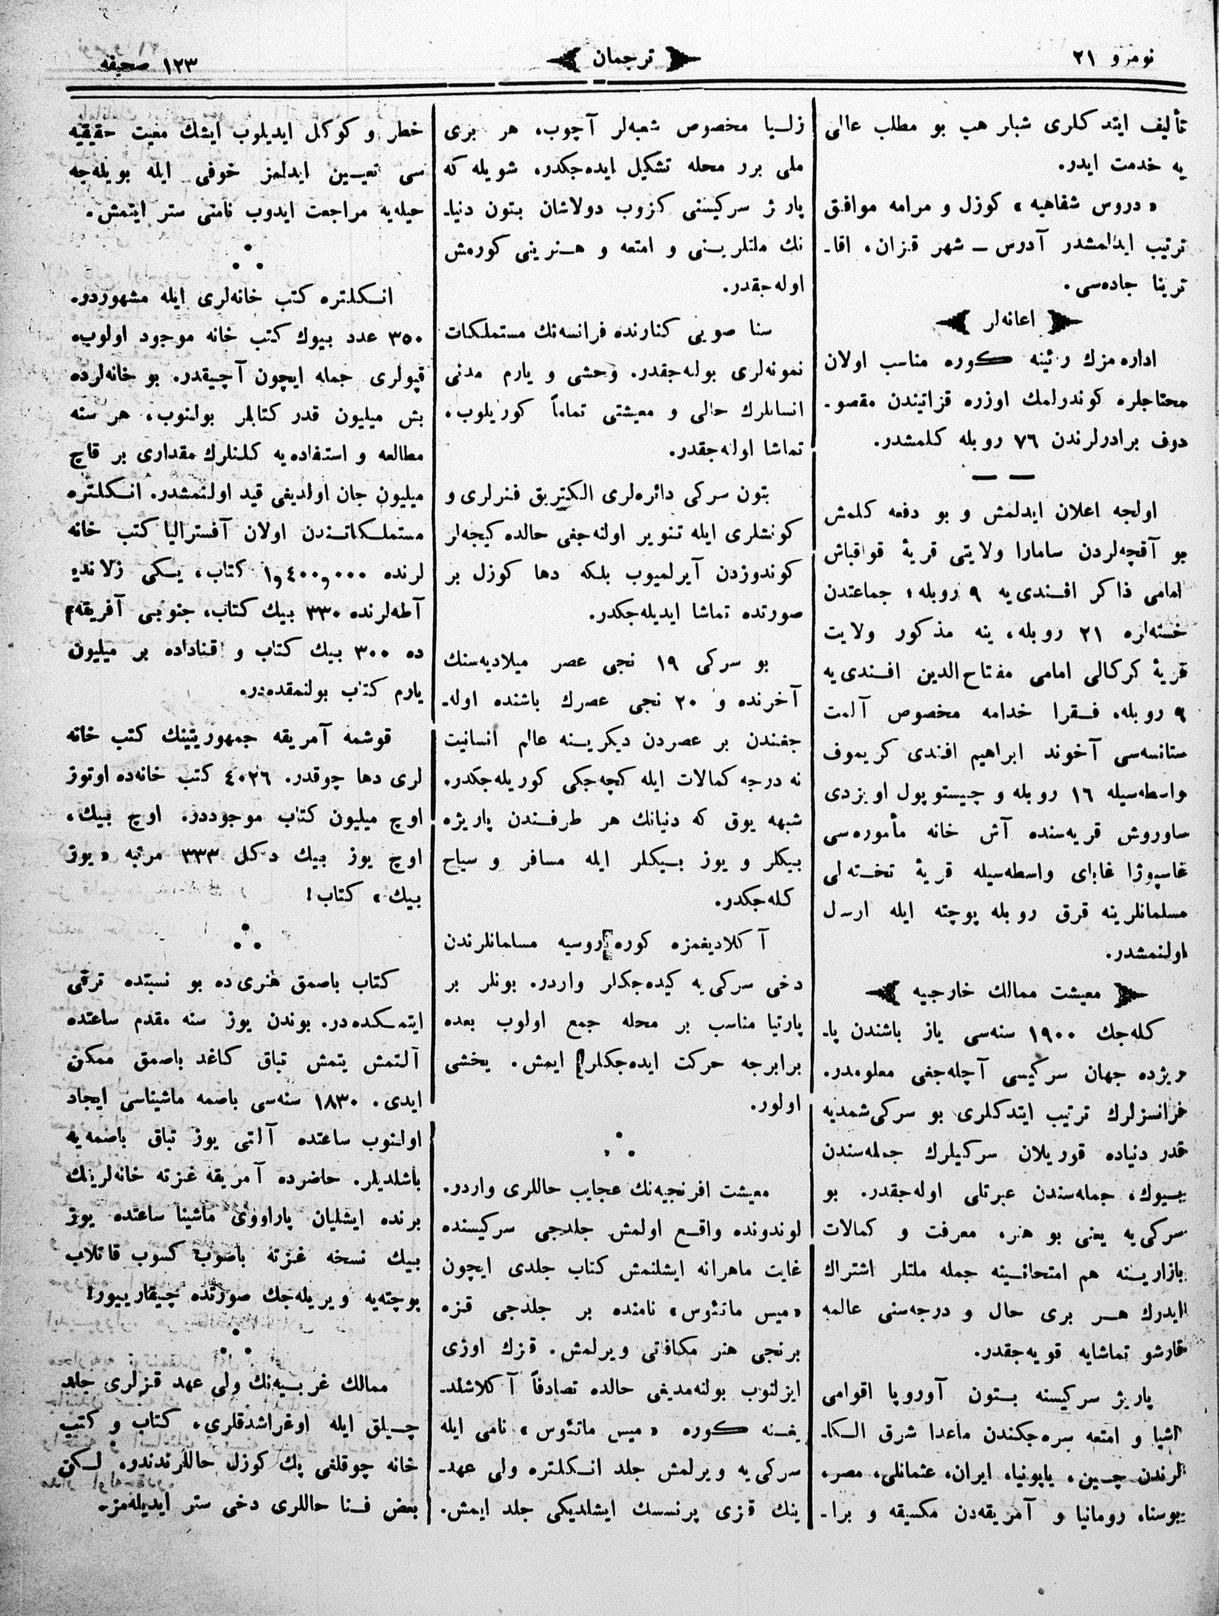 نومرو ٢١
ترجمان
١٢٣ صحيفه
تأليف ايتدكلرى شبلر هپ بو مطلب عالى
يه خدمت ايدر.
« دروس شفاهيه » كوزل و مرامه موافق
ترتيب ايدلمشدر آدرس ــ شهر قزان، اقا۔
ترينا جاده‌سى.
اعانه‌لر
اداره مزك رئينه كوره مناسب اولان
محتاجلره كوندرلمك اوزره قزاتيندن مقصو۔
دوف برادرلرندن ٧٦ روبله كلمشدر.
اولجه اعلان ايدلمش و بو دفعه كلمش
بو آقچه‌لردن سامارا ولايتى قريۀ قواقباش
امامى ذاكر افندى‌يه ٩ روبله، جماعتدن
خسته‌لره ٢١ روبله، ينه مذكور ولايت
قريۀ كركالى امامى مفتاح‌الدين افندى‌يه
٩ روبله، فقرا خدامه مخصوص آلمت
ستانسه‌سى آخوند ابراهيم افندى كريموف
واسطه‌سيله ١٦ روبله و چيستوپول اويزدى
ساوروش قريه‌سنده آش خانه مأموره‌سى
غاسپوژا غاباى واسطه‌سيله قريۀ تخته‌لى
مسلمانلرينه قرق روبله پوچته ايله ارسل
اولنمشدر.
معيشت ممالك خارجيه
كله‌جك ١٩٠٠ سنه‌سى ياز باشندن پا۔
ريژده جهان سركيسى آچله‌جغى معلومدر.
فرانسزلرك ترتيب ايتدكلرى بو سركى شمديه
قدر دنياده قوريلان سركيلرك جمله‌سندن
بيوك، جمله‌سندن عبرتلى اوله‌جقدر. بو
سركى‌يه يعنى بو هنر، معرفت و كمالات
بازارينه هم امتحانينه جمله ملتلر اشتراك
ايدرك هر برى حال و درجه‌سنى عالمه
قارشو تماشايه قويه‌جقدر.
پاريژ سركيسنه بتون آوروپا اقوامى
اشيا و امتعه سره‌جكندن ماعدا شرق الكا۔
لرندن چين، ياپونيا، ايران، عثمانلى، مصر،
بوسنا، رومانيا و آمريقه‌دن مكسيقه و برا۔
زليا مخصوص شعبه‌لر آچوب، هر برى
ملى برر محله تشكيل ايده‌جكدر. شويله كه
پاريژ سركيسنى كزوب دولاشان بتون دنيا۔
نك ملتلرينى و امتعه و هنرينى كورمش
اوله‌جقدر.
سنا صويى كنارنده فرانسه‌نك مستملكات
نمونه‌لرى بوله‌جقدر. وحشى و يارم مدنى
انسانلرك حالى و معيشتى تماماً كوريلوب،
تماشا اولنه‌جقدر.
بتون سركى دائره‌لرى الكتريق فنرلرى و
كونشلرى ايله تنوير اولنه‌جغى حالده كيجه‌لر
كوندوزدن آيرلميوب بلكه دها كوزل بر
صورتده تماشا ايديله‌جكدر.
بو سركى ١٩ نجى عصر ميلاديه‌سنك
آخرنده و ٢٠ نجى عصرك باشنده اوله۔
جغندن بر عصردن ديكرينه عالم انسانيت
نه درجه كمالات ايله كچه‌جكى كوريله‌جكدر.
شبهه يوق كه دنيانك هر طرفندن پاريژه
بيكلر و يوز بيكلر ايله مسافر و سياح
كله‌جكدر.
آكلاديغمزه كوره روسيه مسلمانلرندن
دخى سركى‌يه كيده‌جكلر واردر. بونلر بر
پارتيا مناسب بر محله جمع اولوب بعده
برابرجه حركت ايده‌جكلر ايمش. يخشى
اولور.
معيشت افرنجيه‌نك عجايب حاللرى واردر.
لوندونده واقع اولمش جلدجى سركيسنده
غايت ماهرانه ايشلنمش كتاب جلدى ايچون
«ميس ماتئوس» نامنده بر جلدجى قزه
برنجى هنر مكافاتى ويرلمش. قزك اوزى
ايزلنوب بولنه‌مديغى حالده تصادفاً آكلاشلد۔
يغنه كوره «ميس ماتئوس» نامى ايله
سركى‌يه ويرلمش جلد انكلتره ولى عهد۔
ينك قزى پرنسسك ايشلديكى جلد ايمش.
خطر و كوكل ايديلوب ايشك معيت حقيقيه
سى تعيين ايدلمز خوفى ايله بويله‌جه
حيله‌يه مراجعت ايدوب نامنى ستر ايتمش.
انكلتره كتب خانه‌لرى ايله مشهوردر.
٣٥٠ عدد بيوك كتب خانه موجود اولوب،
قپولرى جمله ايچون آچيقدر. بو خانه‌لرده
بش ميليون قدر كتابلر بولنوب، هر سنه
مطالعه و استفاده‌يه كلنلرك مقدارى بر قاچ
ميليون جان اولديغى قيد اولنمشدر. انكلتره
مستملكاتندن اولان آفستراليا كتب خانه
لرنده ١,٤٠٠,٠٠٠ كتاب، يكى زلاندبه
آطه‌لرنده ٣٣٠ بيك كتاب، جنوبى آفريقه
ده ٣٠٠ بيك كتاب و قناداده بر ميليون
يارم كتاب بولنمقده‌در.
قوشمه آمريقه جمهوريتينك كتب خانه
لرى دها چوقدر. ٤٠٢٦ كتب خانه‌ده اوتوز
اوچ ميليون كتاب موجوددر. اوچ بيك،
اوچ يوز بيك دكل ٣٣٣ مرتبه «يوز
بيك» كتاب!
كتاب باصمق هنرى‌ده بو نسبتده ترقى
ايتمكده‌در. بوندن يوز سنه مقدم ساعتده
آلتمش يتمش تباق كاغد باصمق ممكن
ايدى. ١٨٣٠ سنه‌سى باصمه ماشيناسى ايجاد
اولنوب ساعتده آلتى يوز تباق باصمه‌يه
باشلديلر. حاضرده آمريقه غزته خانه‌لرينك
برنده ايشليان پاراووى ماشينا ساعتده يوز
بيك نسخه غزته باصوب كسوب قاتلاب
پوچته‌يه ويريله‌جك صورتده چيقارييور!
ممالك غربيه‌نك ولى عهد قزلرى جلد
چيلق ايله اوغراشدقلرى، كتاب و كتب
خانه چوقلغى پك كوزل حاللرتدندر. لكن
بعض فنا حاللرى دخى ستر ايديله‌مز۔